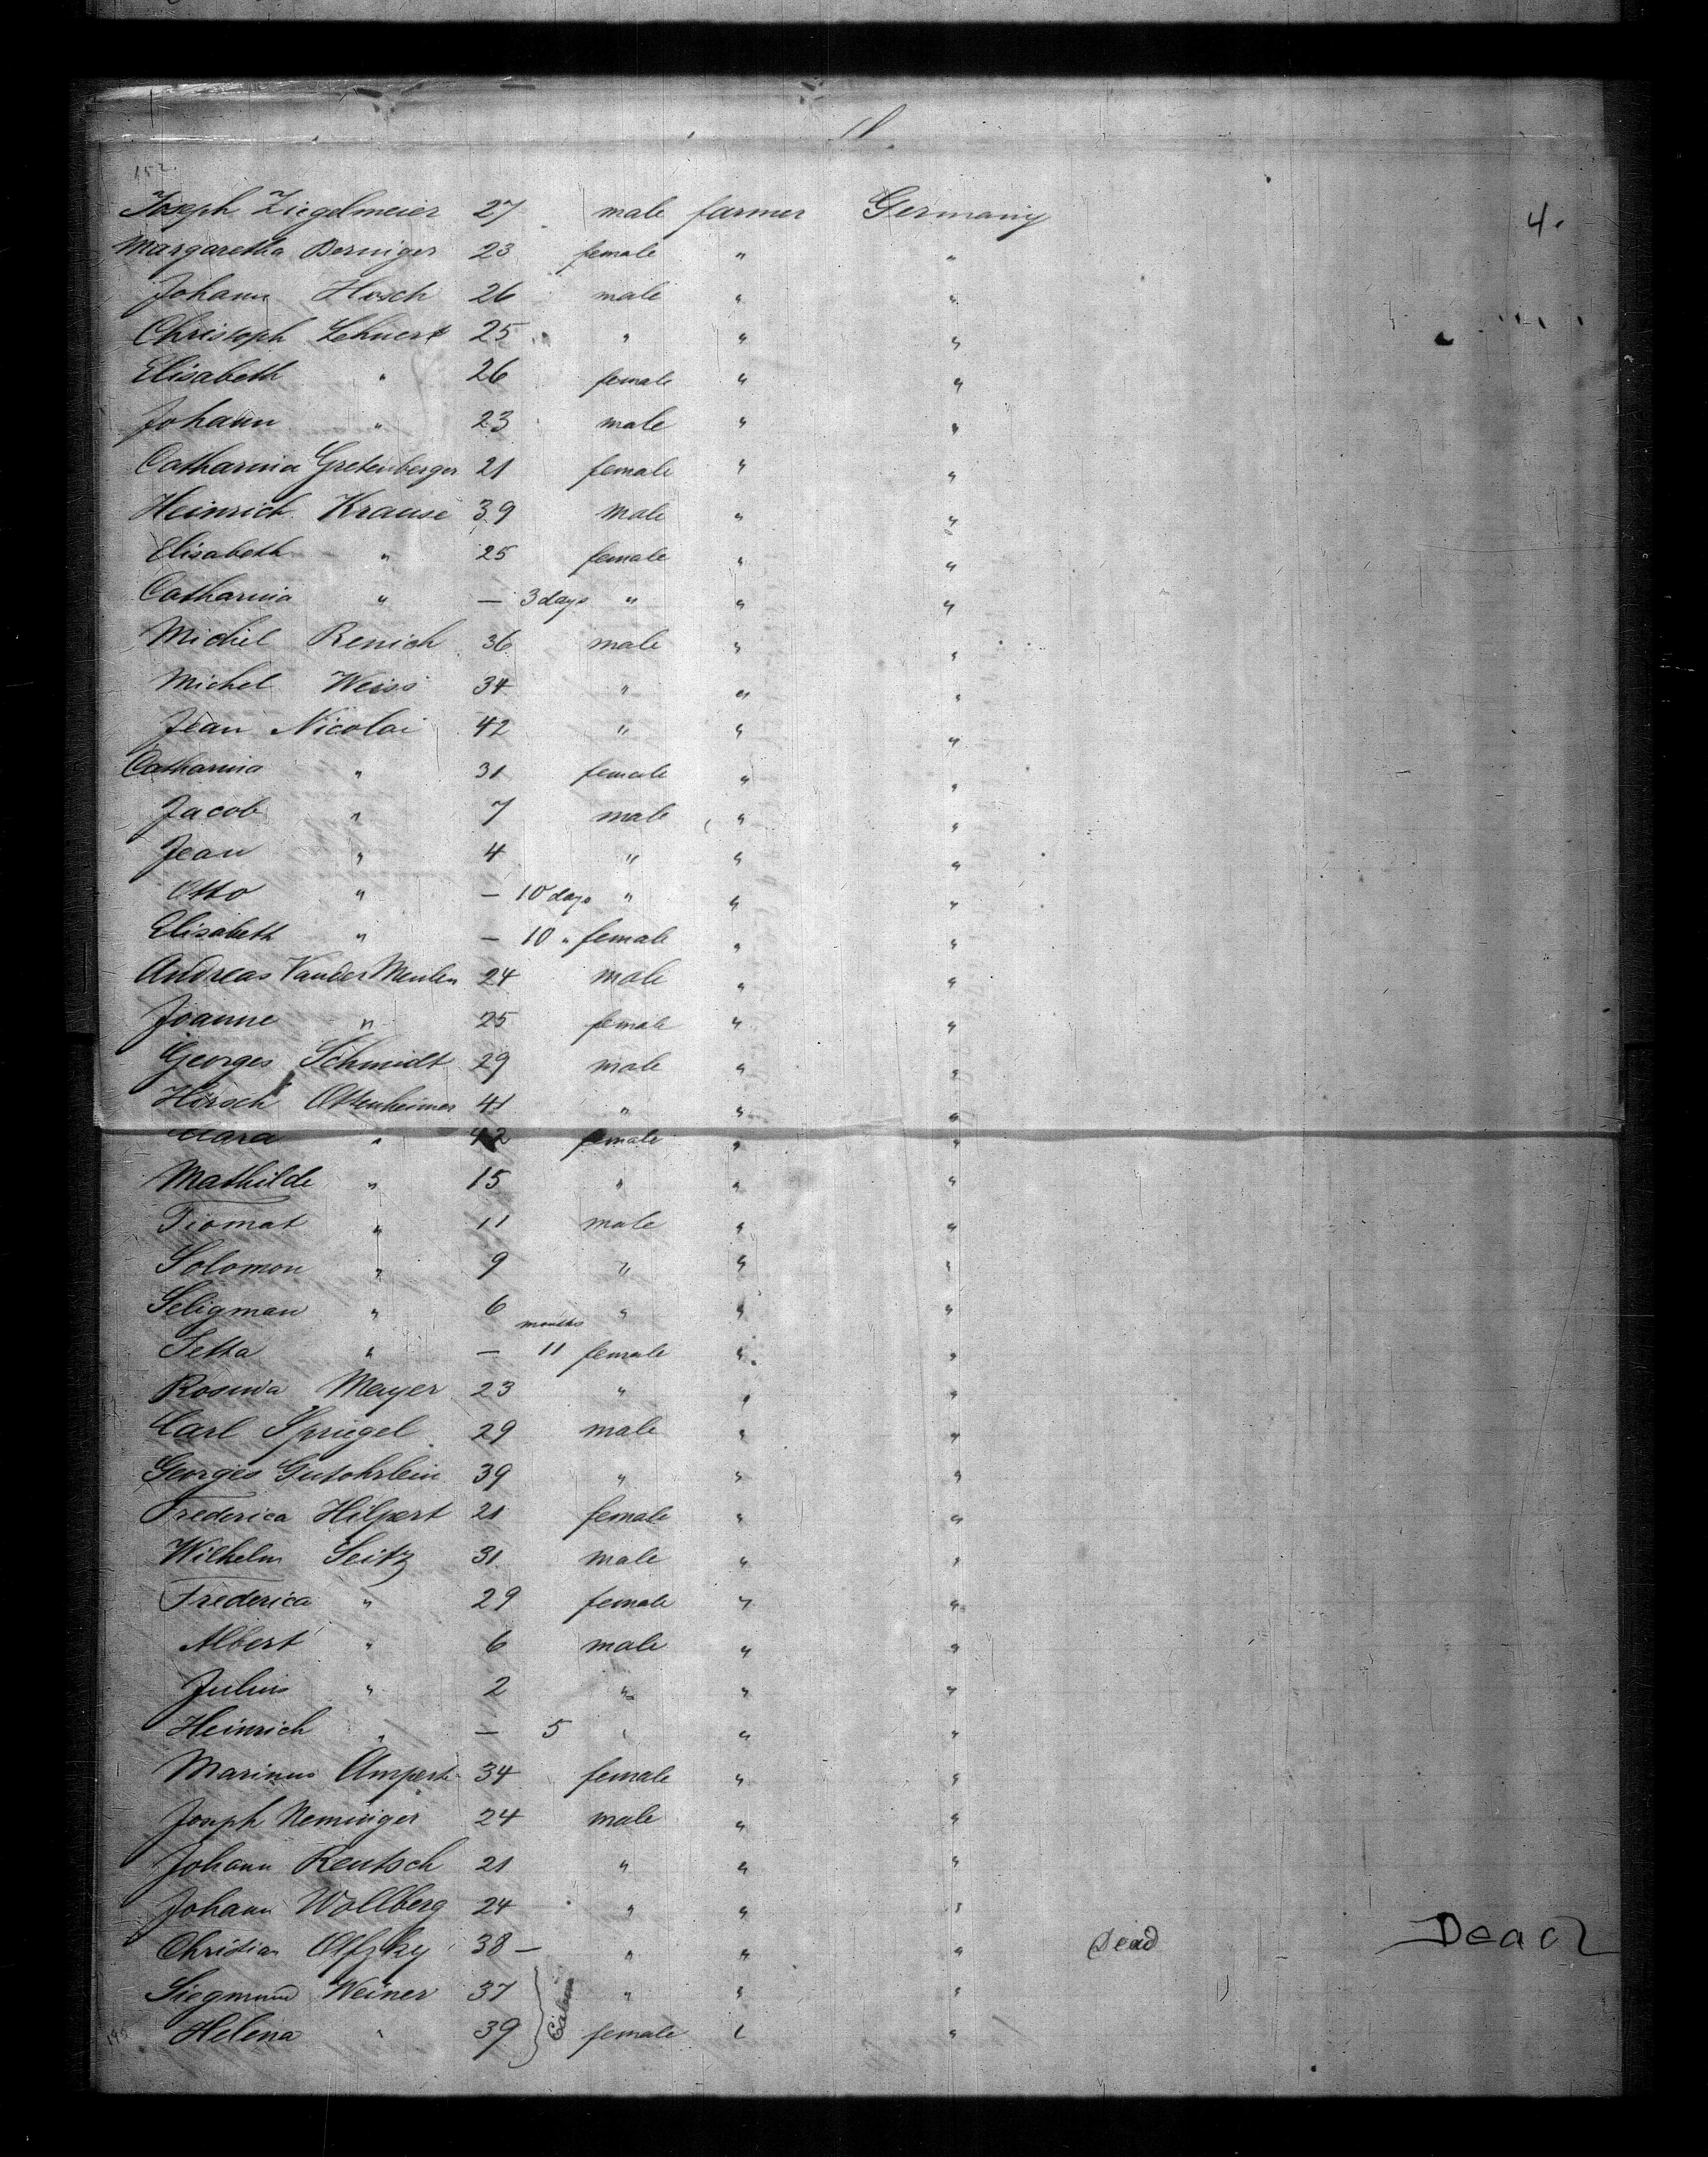 152.
Joseph Ziegelmeier 27 male farmer Germany 4.
Margaretha Berniger 23 female " "
Johann Hosch 26 male " "
Christoph Lehnert 25 " " "
Elisabeth " 26 female " "
Johann " 23 male " "
Catharina Gretenberger 21 female " "
Heinrich Krause 39 male " "
Elisabeth " 25 female " "
Catharina " — 3 days " " "
Michel Renich 36 male " "
Michel Weiss 34 " " "
Jean Nicolai 42 " " "
Catharina " 31 female " "
Jacob " 7 male " "
Jean " 4 " " "
Otto " — 10 days " " "
Elisabeth " — 10 " female " "
Andreas VanderMeulen 24 male " "
Joanne " 25 female " "
Georges Schmidt 29 male " "
Hirsch Ottenheimer 41 " " "
Clara " 42 female " "
Mathilde " 15 " " "
Tiomat " 11 male " "
Solomon " 9 " " "
Seligman " 6 " " "
months
Setta " — 11 female " "
Rosina Mayer 23 " " "
Carl Spriegel 29 male " "
Georges 39 " " "
Frederica Hilpert 21 female " "
Wilhelm Seitz 31 male " "
Frederica " 29 female " "
Albert " 6 male " "
Julius " 2 " " "
Heinrich " — 5 " " "
Marinus 34 female " "
Joseph Neminger 24 male " "
Johann Rentsch 21 " " "
Johann Wollberg 24 " " "
Christian 38 — " " " Dead Dead
Siegmund Weiner 37 " " "
Helena " 39 female " "